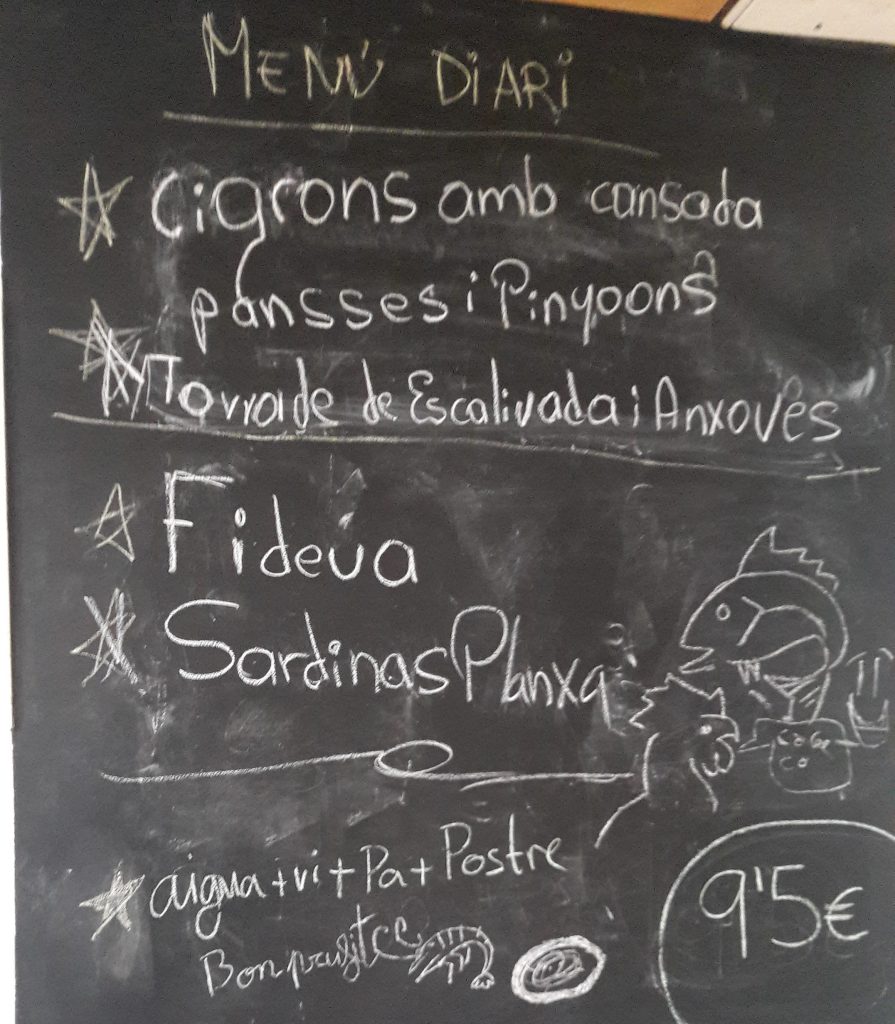 MENÚ DiARi
Cigrons amb cansada
pansses i Pinyoons
Torrade de Escalivada i Anxoves
Fideua
Sardinas Planxa
aigua + vi + Pa + Postre
Bon
9'5€